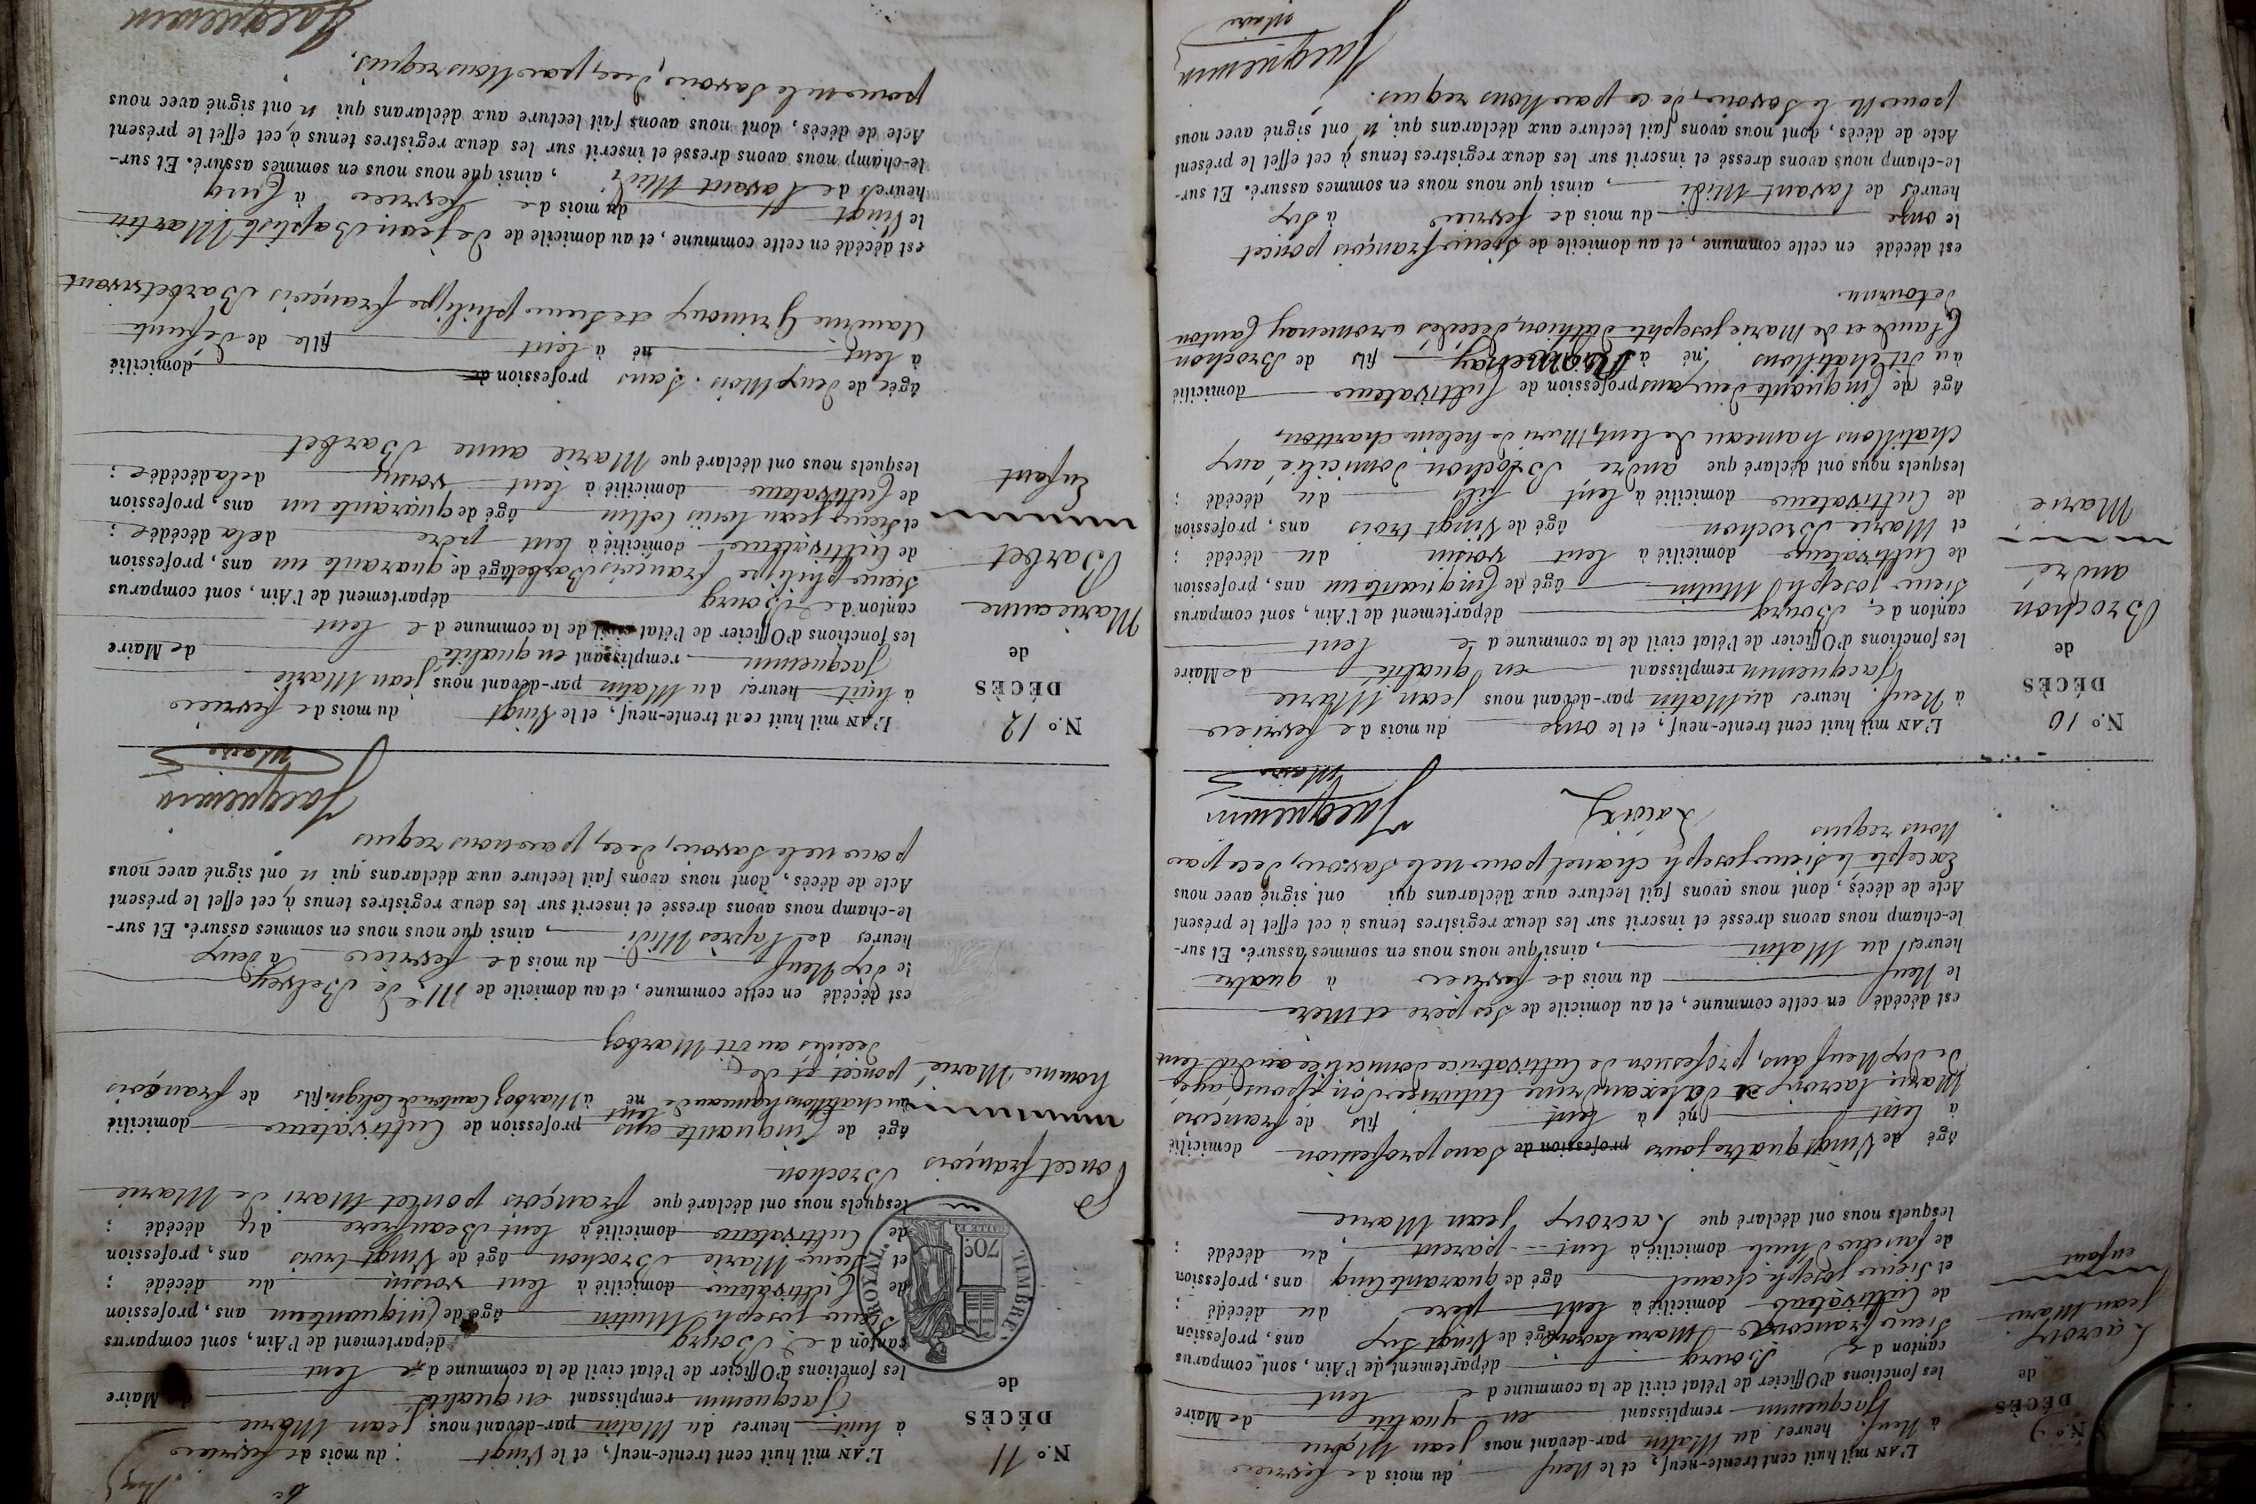 N.º 9
DÉCÈS
de
Lacroix
Jean Marie
enfant
L'AN mil huit cent trente-neuf, et le Neuf du mois de fevrier
à Neuf heures du Matin par-devant nous jean Marie
Jacquemin remplissant en qualité de Maire
les fonctions d'Officier de l'état civil de la commune de lent
canton de Bourg département de l'Ain, sont comparus
Sieur françois Marie lacroix âgé de Vingt six ans, profession
de Cultivateur domicilié à lent père du décédé ;
et Sieur joseph chanel âgé de quarante cinq ans, profession
de domicilié à lent parent du décédé ;
lesquels nous ont déclaré que Lacroix Jean Marie
âgé de Vingt quatre jours profession de Sans profession domicilié
à lent né à lent fils de françois
Marie lacroix et d'alexandrine son épouse, agée
de dix Neuf ans, profession de Cultivatrice domiciliée audit lent
est décédé en cette commune, et au domicile de Ses père et mère
le Neuf du mois de fevrier à quatre
heures du Matin, ainsi que nous nous en sommes assuré. Et sur-
le-champ nous avons dressé et inscrit sur les deux registres tenus à cet effet le présent
Acte de décès, dont nous avons fait lecture aux déclarans qui ont signé avec nous
Excepté le Sieur joseph chanel pour ne le Savoir, de ce, par
Nous requis
Lacroix Jacquemin
Maire
N.º 10
DÉCÈS
de
Brochon
andré
Marie
L'AN mil huit cent trente-neuf, et le onze du mois de fevrier
à Neuf heures du Matin par-devant nous jean Marie
Jacquemin remplissant en qualité de Maire
les fonctions d'Officier de l'état civil de la commune de lent
canton de Bourg département de l'Ain, sont comparus
Sieur joseph Mutin âgé de Cinquante un ans, profession
de Cultivateur domicilié à lent voisin du décédé ;
et Marie Brochon âgé de Vingt trois ans, profession
de Cultivateur domicilié à lent fils du décédé ;
lesquels nous ont déclaré que andré Brochon domicilié aux
chatillons hameau de lent, Mari de helein charton,
âgé de Cinquante deux ans profession de Cultivateur domicilié
au dit chatillons né à Romenay fils de Brochon
Claude et de Marie josephte décédés a romenay Canton
de tournu.
est décédé en cette commune, et au domicile de Sieur françois poncet
le onze du mois de fevrier à six
heures de lavant Midi, ainsi que nous nous en sommes assuré. Et sur-
le-champ nous avons dressé et inscrit sur les deux registres tenus à cet effet le présent
Acte de décès, dont nous avons fait lecture aux déclarans qui n'ont signé avec nous
pour Ne le Savoir, de ce par Nous requis.
Jacquemin
Maire
TIMBRE ROYAL
70c
N.º 11
DÉCÈS
de
Poncet françois
homme Marié
L'AN mil huit cent trente-neuf, et le Vingt du mois de fevrier
à huit heures du Matin par-devant nous jean Marie
Jacquemin remplissant en qualité de Maire
les fonctions d'Officier de l'état civil de la commune de lent
canton de Bourg département de l'Ain, sont comparus
Sieur joseph Mutin âgé de Cinquante un ans, profession
de Cultivateur domicilié à lent voisin du décédé ;
et Sieur Marie Brochon âgé de Vingt trois ans, profession
de Cultivateur domicilié à lent Beaufrere du décédé ;
lesquels nous ont déclaré que françois poncet Mari de Marie
Brochon
âgé de Cinquante ans profession de Cultivateur domicilié
au chatillon hameau de lent né à Marboz Canton de Coligni fils de françois
poncet et de
décédés au dit Marboz
est décédé en cette commune, et au domicile de Mr de Belvey
le dix Neuf du mois de fevrier à deux
heures de l'après Midi, ainsi que nous nous en sommes assuré. Et sur-
le-champ nous avons dressé et inscrit sur les deux registres tenus à cet effet le présent
Acte de décès, dont nous avons fait lecture aux déclarans qui n'ont signé avec nous
pour ne le Savoir, de ce, par nous requis
Jacquemin
Maire
N.º 12
DÉCÈS
de
Marie anne
Barbet
Enfant
L'AN mil huit cent trente-neuf, et le Vingt du mois de fevrier
à huit heures du Matin par-devant nous jean Marie
Jacquemin remplissant en qualité de Maire
les fonctions d'Officier de l'état civil de la commune de lent
canton de Bourg département de l'Ain, sont comparus
Sieur philippe françois Barbet âgé de quarante un ans, profession
de Cultivateur domicilié à lent père de la décédée ;
et Sieur jean louis Collin âgé de quarante un ans, profession
de Cultivateur domicilié à lent voisin de la décédée ;
lesquels nous ont déclaré que Marie anne Barbet
âgée de deux Mois. Sans profession de domicilié
à lent né à lent fille de défunte
Claudine Grimoux et de Sieur philippe françois Barbet vivant
est décédé en cette commune, et au domicile de jean Baptiste Martin
le Vingt du mois de fevrier à Cinq
heures de l'avant Midi, ainsi que nous nous en sommes assuré. Et sur-
le-champ nous avons dressé et inscrit sur les deux registres tenus à cet effet le présent
Acte de décès, dont nous avons fait lecture aux déclarans qui n'ont signé avec nous
pour ne le Savoir, de ce, par Nous requis.
Jacquemin